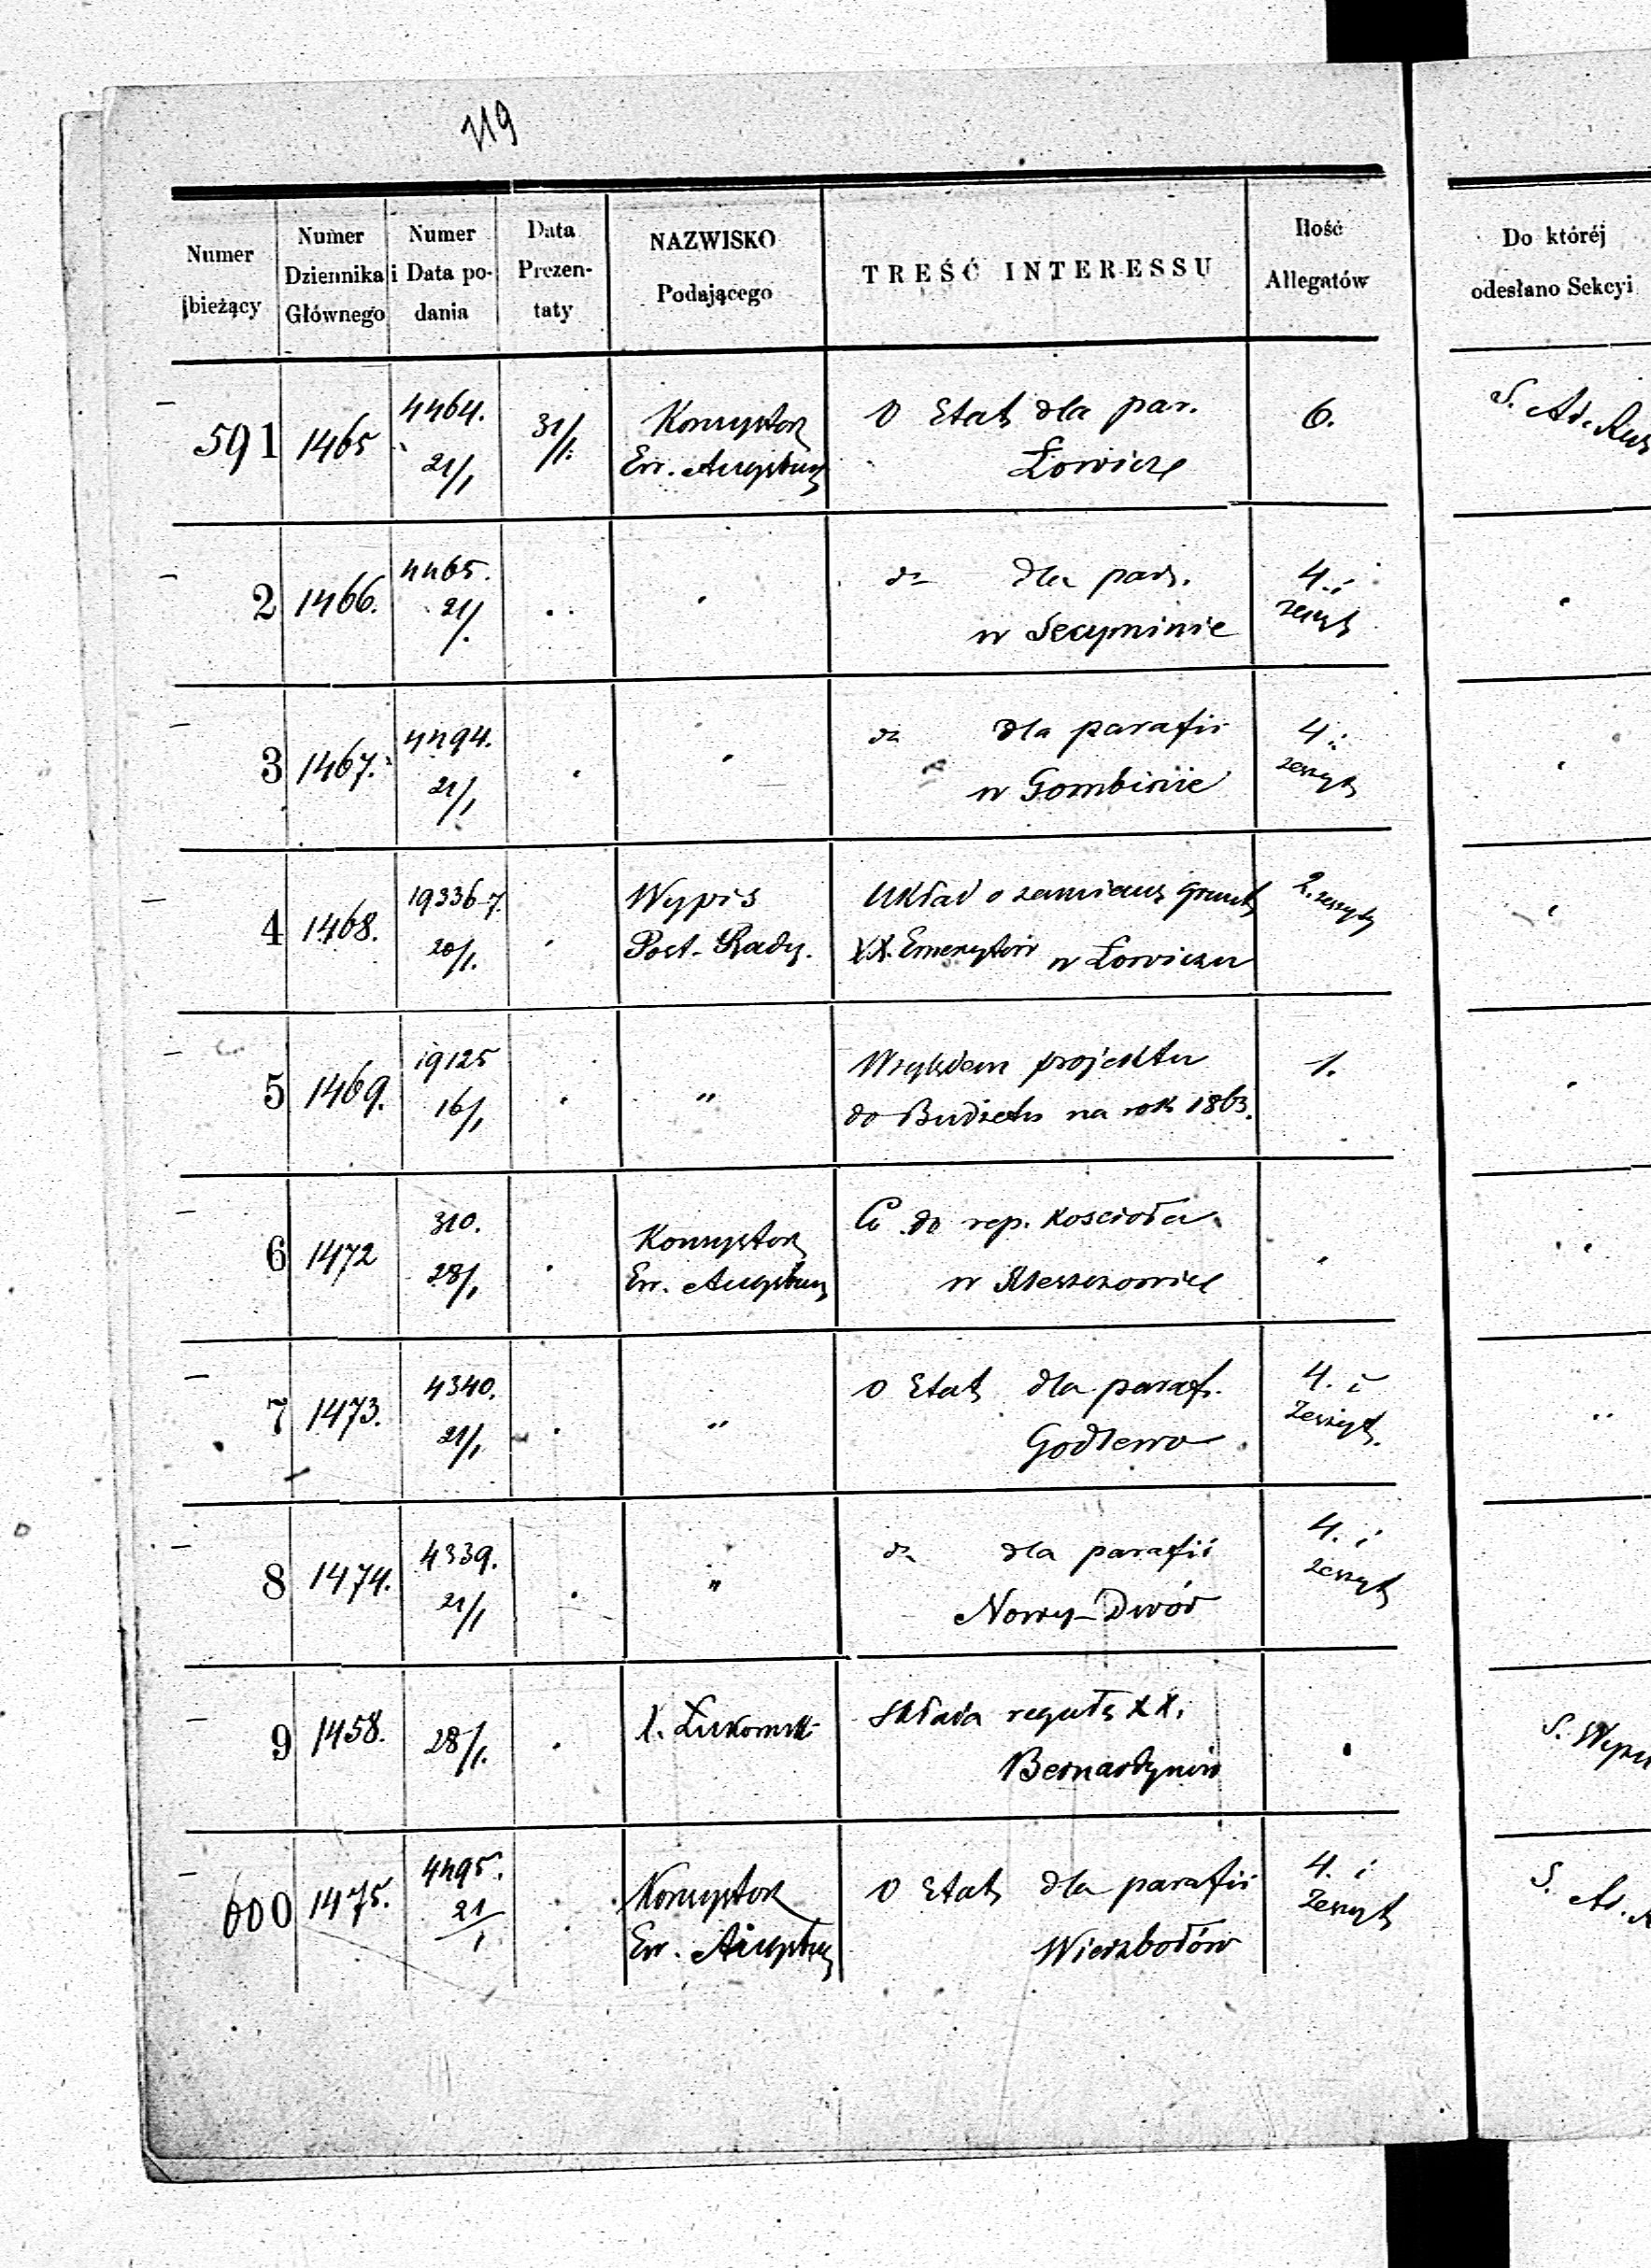 719
Numer
bieżący
Numer
Dziennika
Głównego
Numer
i Data po-
dania
Data
Prezen-
taty
NAZWISKO
Podającego
TREŚĆ INTERESSU
Ilość
Allegatów
Do któréj
odesłano Sekcyi
591 1465 4464. 21/1 31/1. Konsystorz
Ew. Augsburg
O Etat dla par.
Łowicz
6.
S. Ad.
2 1466. 4465. 21/. " do dla par.
w Secyminie
4. i
zeszyt
3 1467. 4494. 21/1 " do dla parafii
w Gombinie
4 i
zeszyt
4 1468. 19336-7. 20/1. Wypis
Post. Rady.
Układ o zamianę gruntu
XX. Emerytów w Łowiczu
2. zeszyty
5 1469. 19125 16/1 "
Względem projektu
do Budżetu na rok 1863.
1.
6 1472 310. 28/1 Konsystorz
Ew. Augsburg
Co do rep. kościoła
w
7 1473. 4340. 21/1 " O Etat dla paraf.
Godlewo
4. i
Zeszyt.
8 1474. 4339. 21/1 " do dla parafii
Nowy-Dwór
4. i
zeszyt
9 1458. 28/1. X. Łukomski
Składa regułę XX.
Bernardynów
S.
600 1475. 4495. 21/1 Konsystorz
Ew. Augsburg
O Etat dla parafii
Wierzbołów
4. i
Zeszyt
S. Ad.